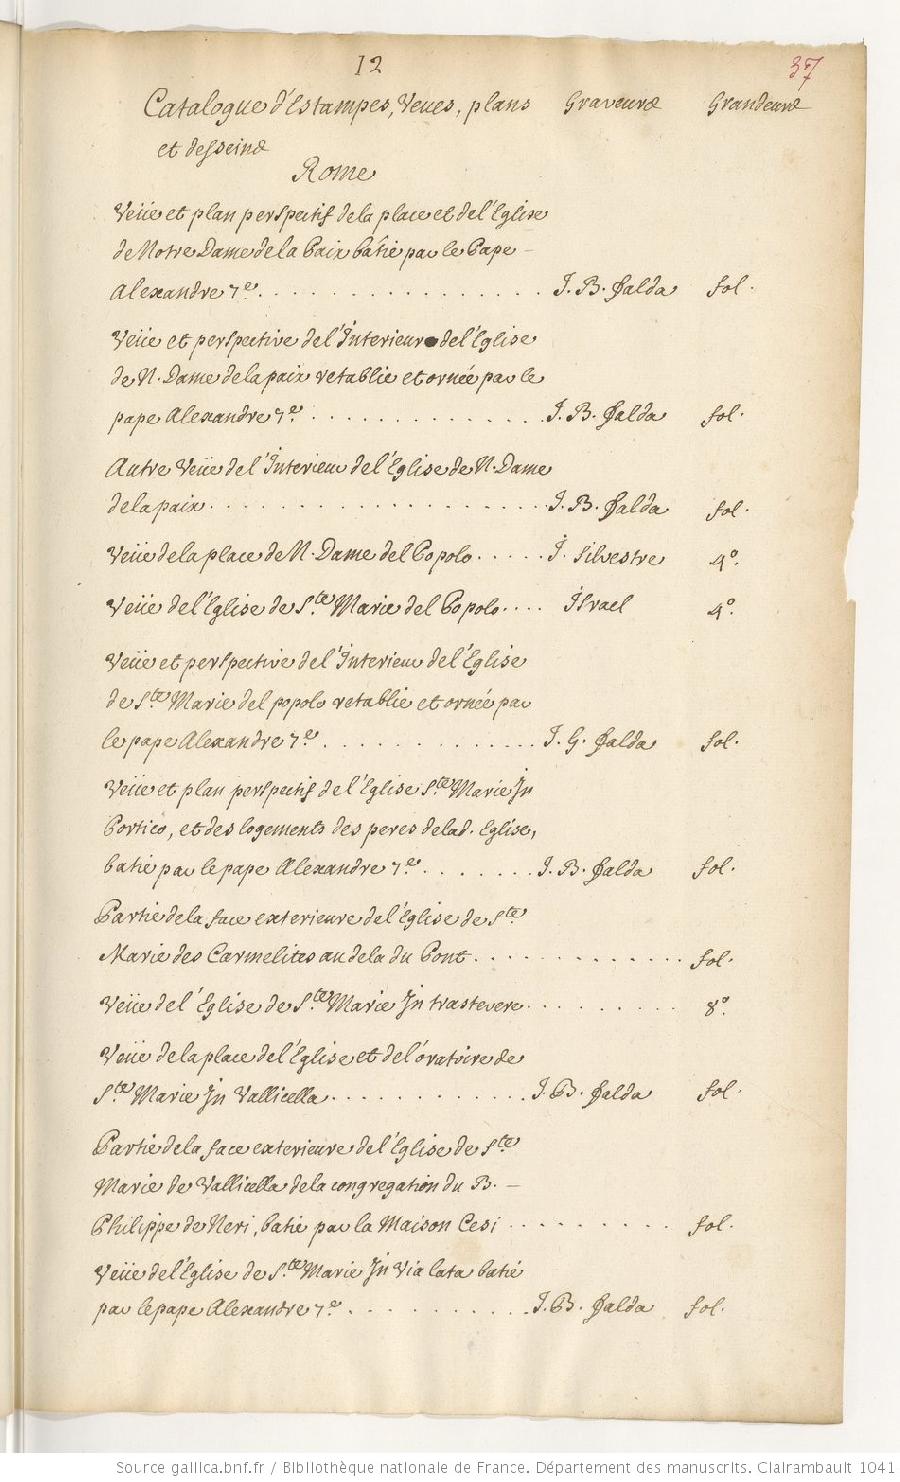 12
37
Catalogue d'Estampes, Veues, plans Graveurs Grandeurs
et desseins
Rome
Veüe et plan perspectif de la place et de l'Eglise
de Notre Dame de la Paix bâtie par le Pape –
Alexandre 7e. . . . . . . . . . . . . . . . . J. B. Falda fol.
Veüe et perspective de l'Interieur de l'Eglise
de N. Dame de la paix retablie et ornée par le
pape Alexandre 7e . . . . . . . . . . . . J. B. Falda fol.
Autre Veüe de l'Interieur de l'Eglise de N. Dame
de la paix . . . . . . . . . . . . . . . . . . . J. B. Falda fol.
Veüe de la place de N. Dame del Popolo . . . . . J. Silvestre 4o.
Veüe de l'Eglise de Ste. Marie del Popolo . . . . Israel 4o.
Veüe et perspective de l'Interieur de l'Eglise
de Ste. Marie del popolo retablie et ornée par
le pape Alexandre 7e . . . . . . . . . . . . J. G. Falda fol.
Veüe et plan perspectif de l'Eglise Ste. Marie In
Portico, et des logements des peres de lad. Eglise,
batie par le pape Alexandre 7e . . . . . . . J. B. Falda fol.
Partie de la face exterieure de l'Eglise de Ste.
Marie des Carmelites au dela du Pont . . . . . . . . . . . . . fol.
Veüe de l'Eglise de Ste. Marie In trastevere . . . . . . . . . 8o.
Veüe de la place de l'Eglise et de l'oratoire de
Ste. Marie In Vallicella . . . . . . . . . . . . J. B. Falda fol.
Partie de la face exterieure de l'Eglise de Ste.
Marie de Vallicella de la congregation du B. –
Philippe de Neri, batie par la Maison Cesi . . . . . . . . . fol.
Veüe de l'Eglise de Ste. Marie In Via lata batie
par le pape Alexandre 7e . . . . . . . . . . J. B. Falda fol.
Source gallica.bnf.fr / Bibliothèque nationale de France. Département des manuscrits. Clairambault 1041